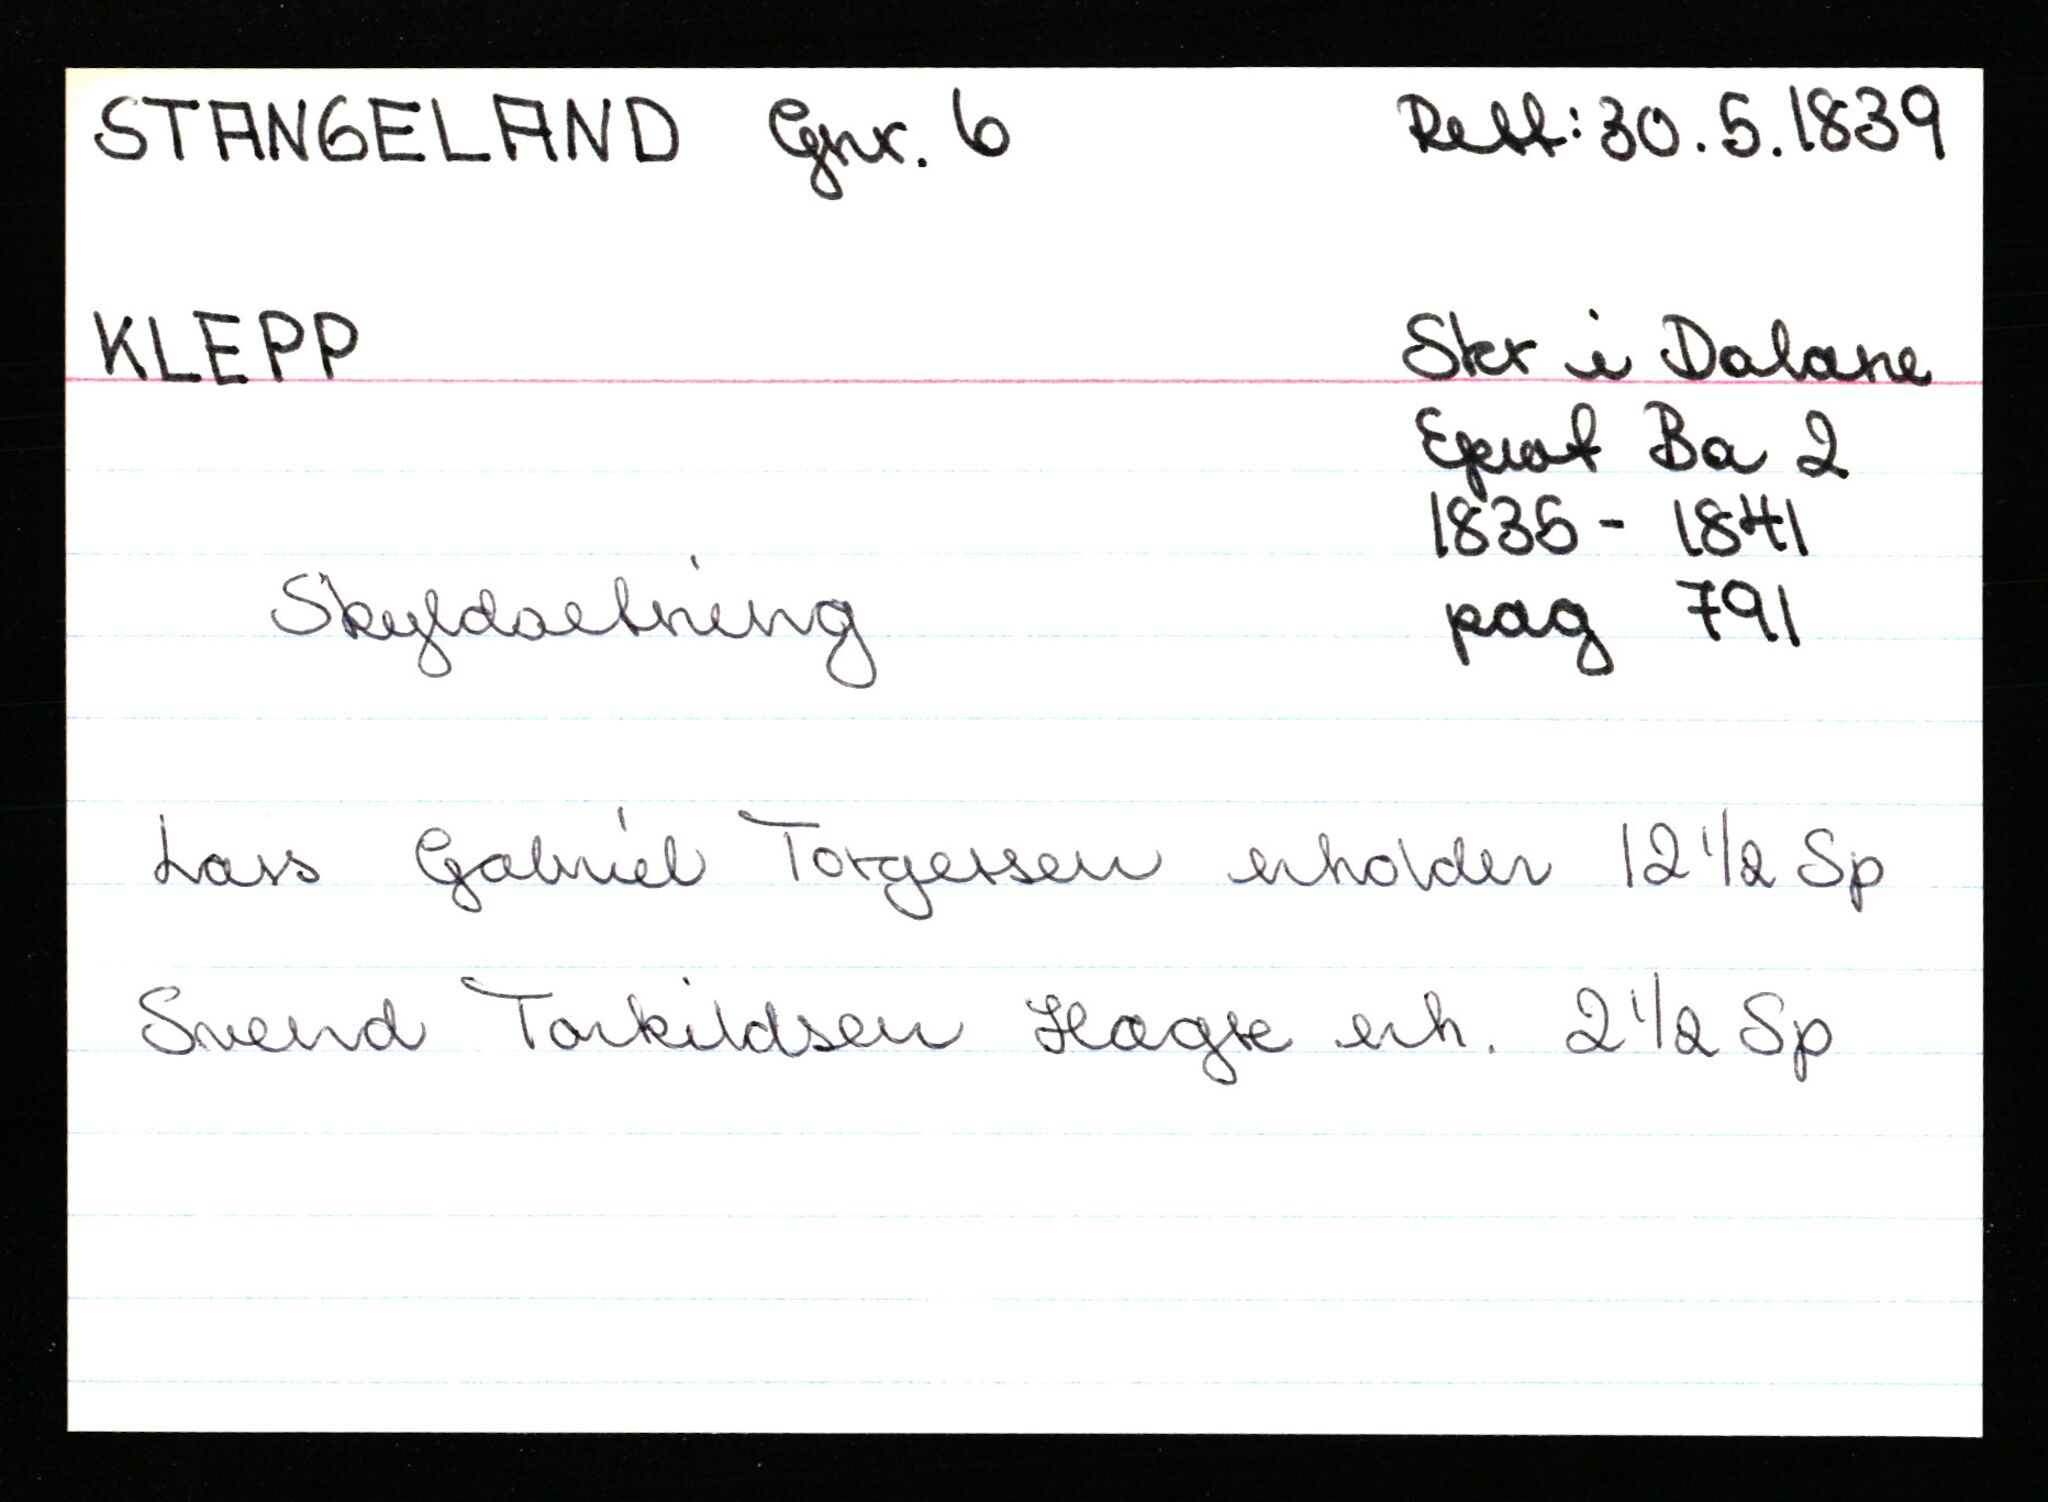 STANGELAND Gnr. 6 Rett: 30.5.1839
KLEPP Skr i Dalane
Eprot Ba 2
1835 - 1841
pag 791
Skyldsetning
Lars Gabriel Torgersen erholder 12 1/2 Sp
Svend Torkildsen erh. 2 1/2 Sp